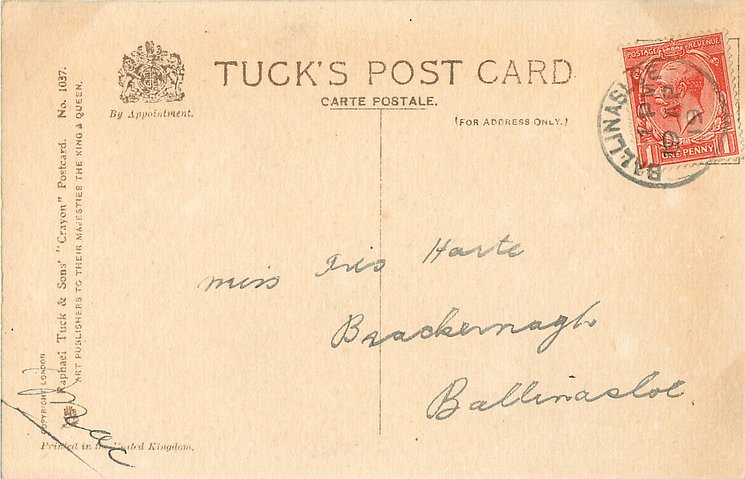 TUCK'S POST CARD
CARTE POSTALE.
By Appointment.
(FOR ADDRESS ONLY.)
POSTAGE REVENUE
1 ONE PENNY 1
BALLINASL
Raphael Tuck & Sons' "Crayon" Postcard. No. 1037.
ART PUBLISHERS TO THEIR MAJESTIES THE KING & QUEEN.
COPYRIGHT LONDON
Miss Iris Harte
Brackernagh
Ballinasloe.
Printed in the United Kingdom.